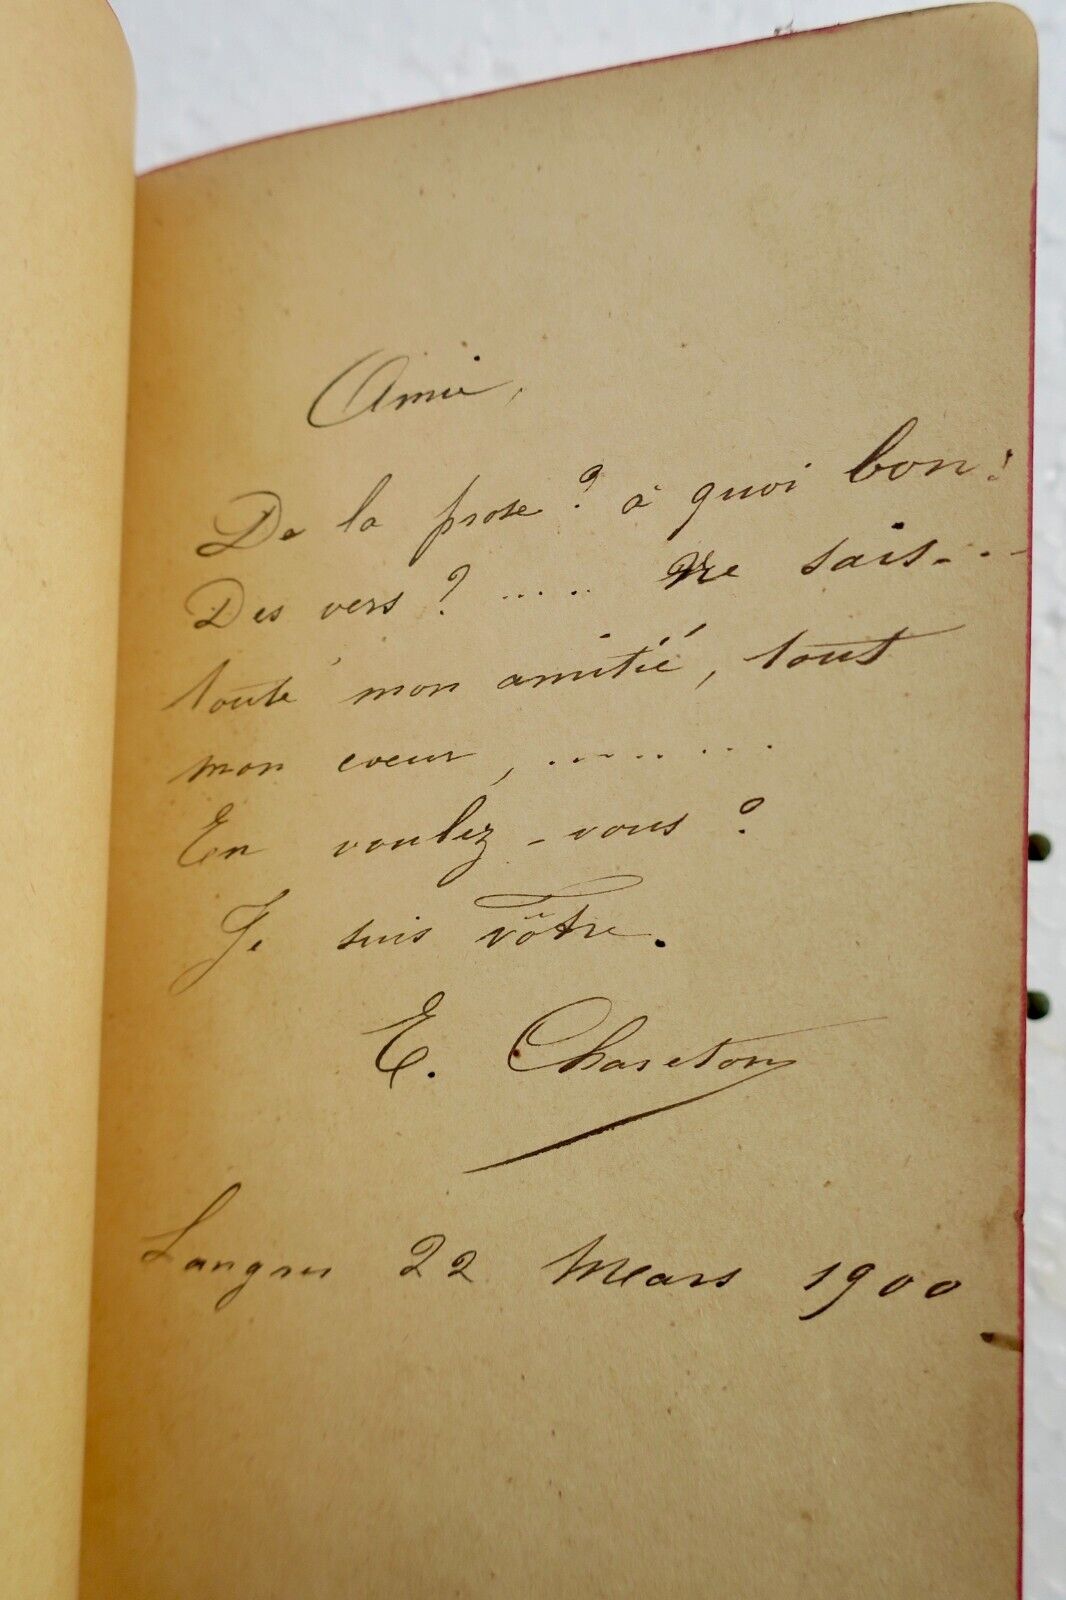 Amie,
De la prose ? à quoi bon !
Des vers ? ..... Ne sais...
toute mon amitié, tout
mon coeur, ........
En voulez-vous ?
Je suis vôtre.
E. Chareton
Langres 22 Mars 1900